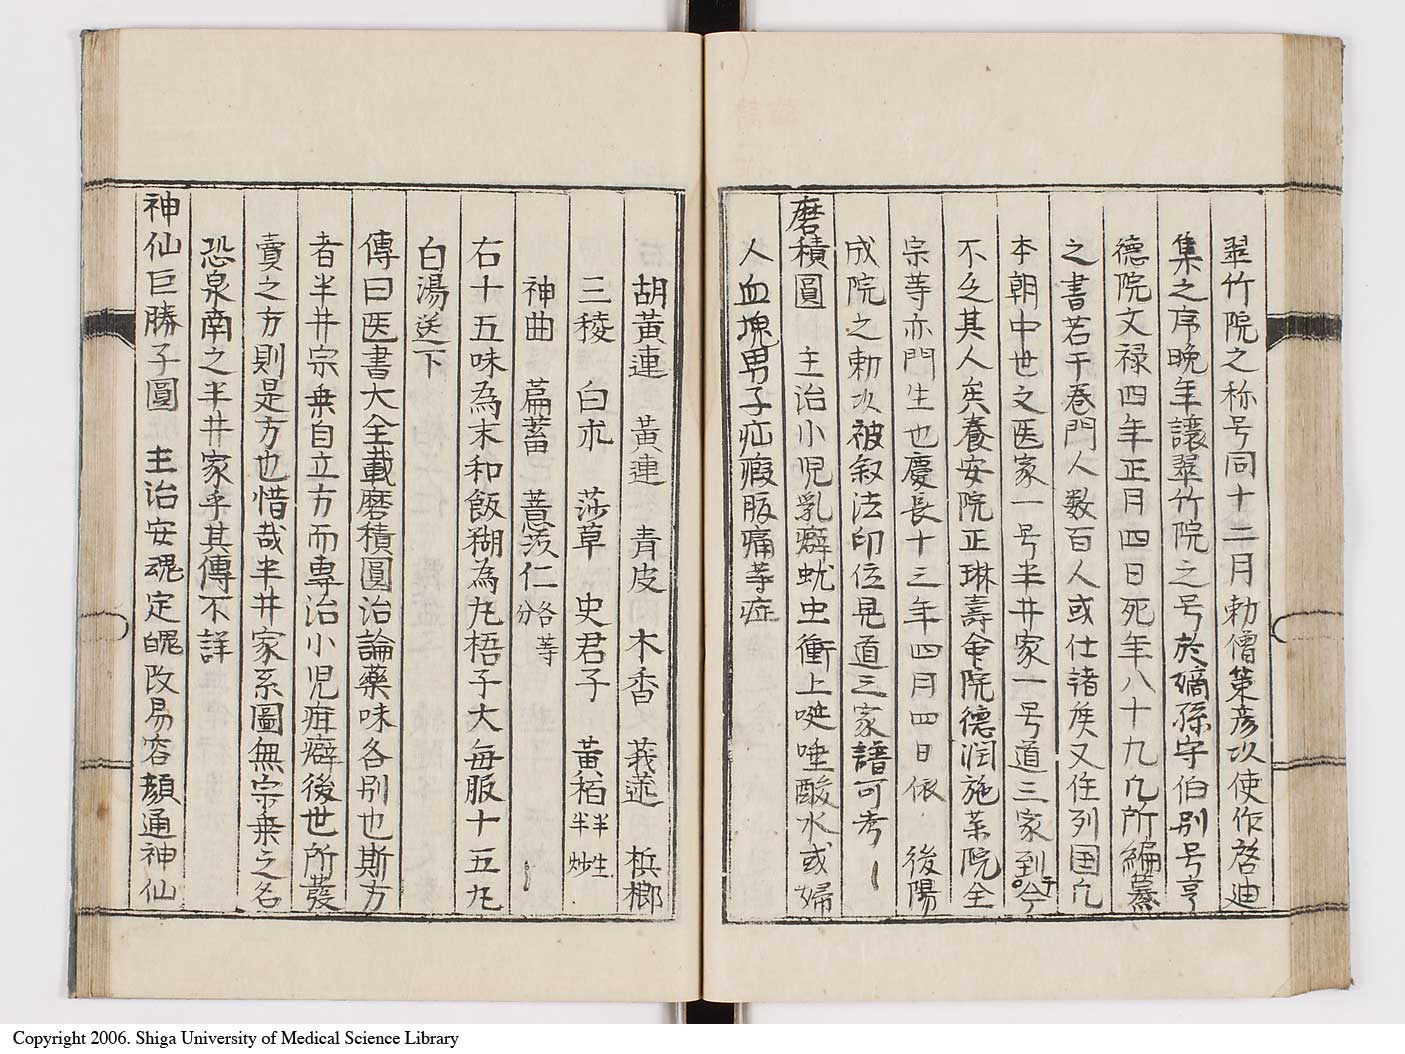 翠竹院之称号同十二月勅僧策彦以使作啓迪
集之序晩年讓翠竹院之号於嫡孫守伯别号亨
德院文禄四年正月四日死年八十九凢所編纂
之書若干巻門人数百人或仕諸矦又住列国凢
本朝中世之医家一号半井家一号道三家到于今
不乏其人矣養安院正琳壽命院德润施薬院全
宗等亦門生也慶長十三年四月四日依 後陽
成院之勅次被叙法印位見道三家譜可考
磨積圓 主治小児乳癖蚘虫衝上唌唾酸水或婦
人血塊男子疝瘕脤痛等症
胡黃連 黃連 青皮 木香 莪蒁 梹榔
三稜 白朮 莎草 史君子 黃栢半生半炒
神曲 萹蓄 薏苡仁各等分
右十五味為末和飯糊為凢梧子大每服十五凢
白湯送下
傳曰医書大全載磨積圓治論藥味各别也斯方
者半井宗乗自立方而専治小児疳癖後世所發
賣之方則是方也惜哉半井家系圖無宗乗之名
恐泉南之半井家乎其傳不詳
神仙巨勝子圓 主治安魂定魄改易容顔通神仙
Copyright 2006. Shiga University of Medical Science Library